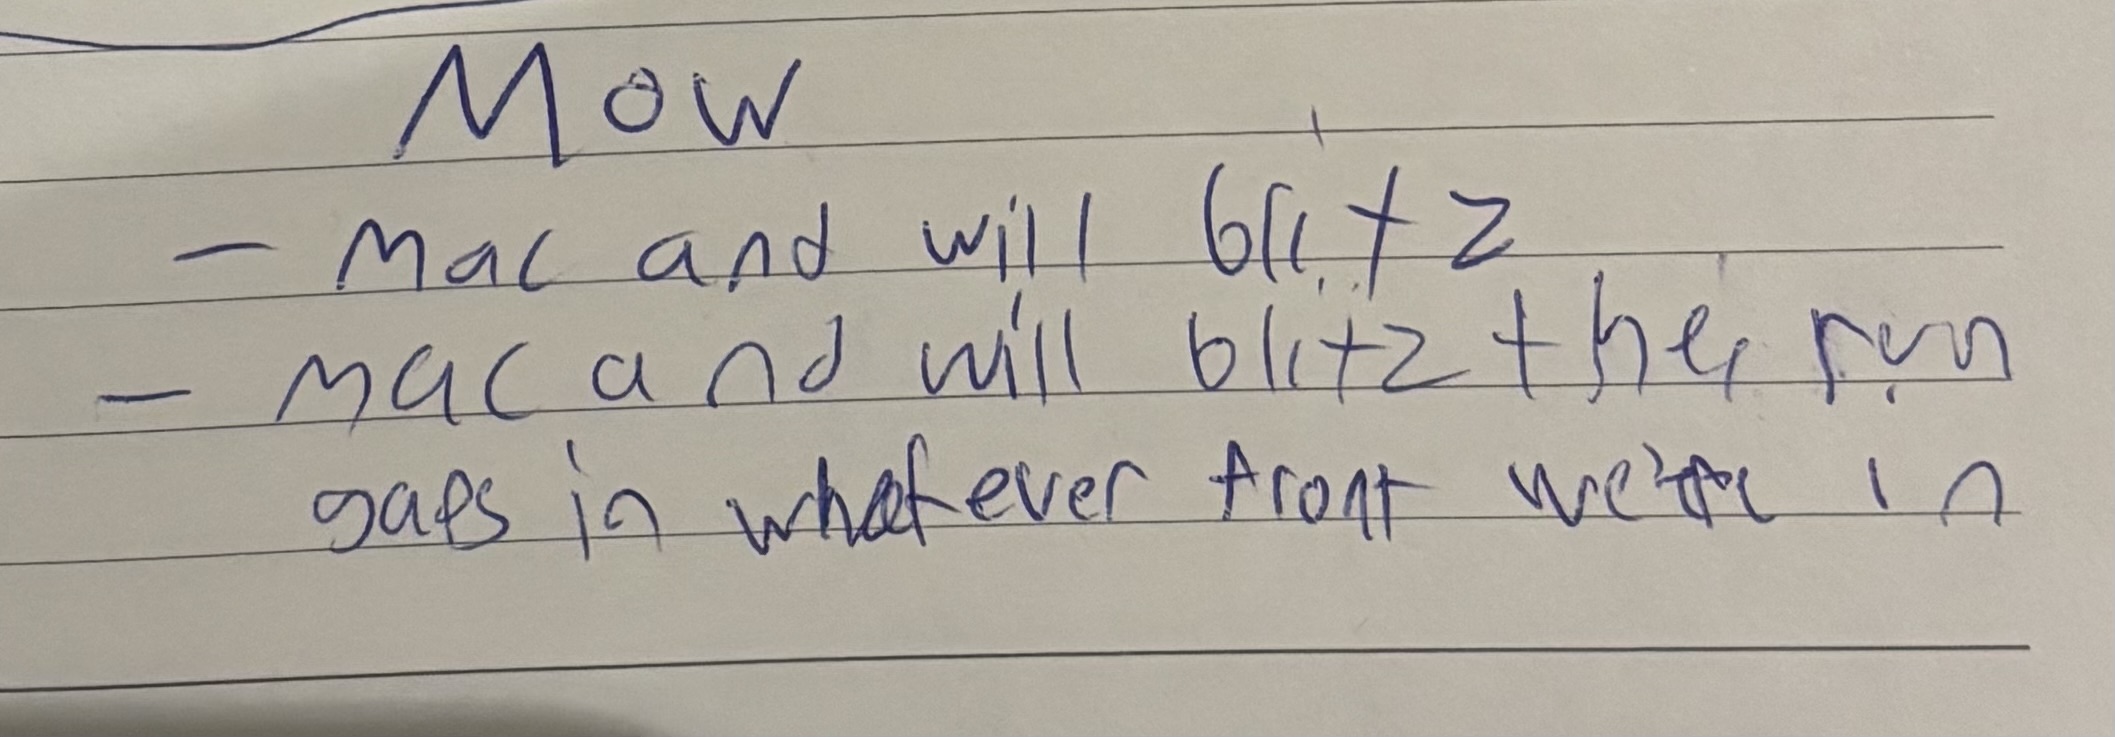 Mow
- Mac and will blitz
- Mac and will blitz their run
gaps in whatever front we're in